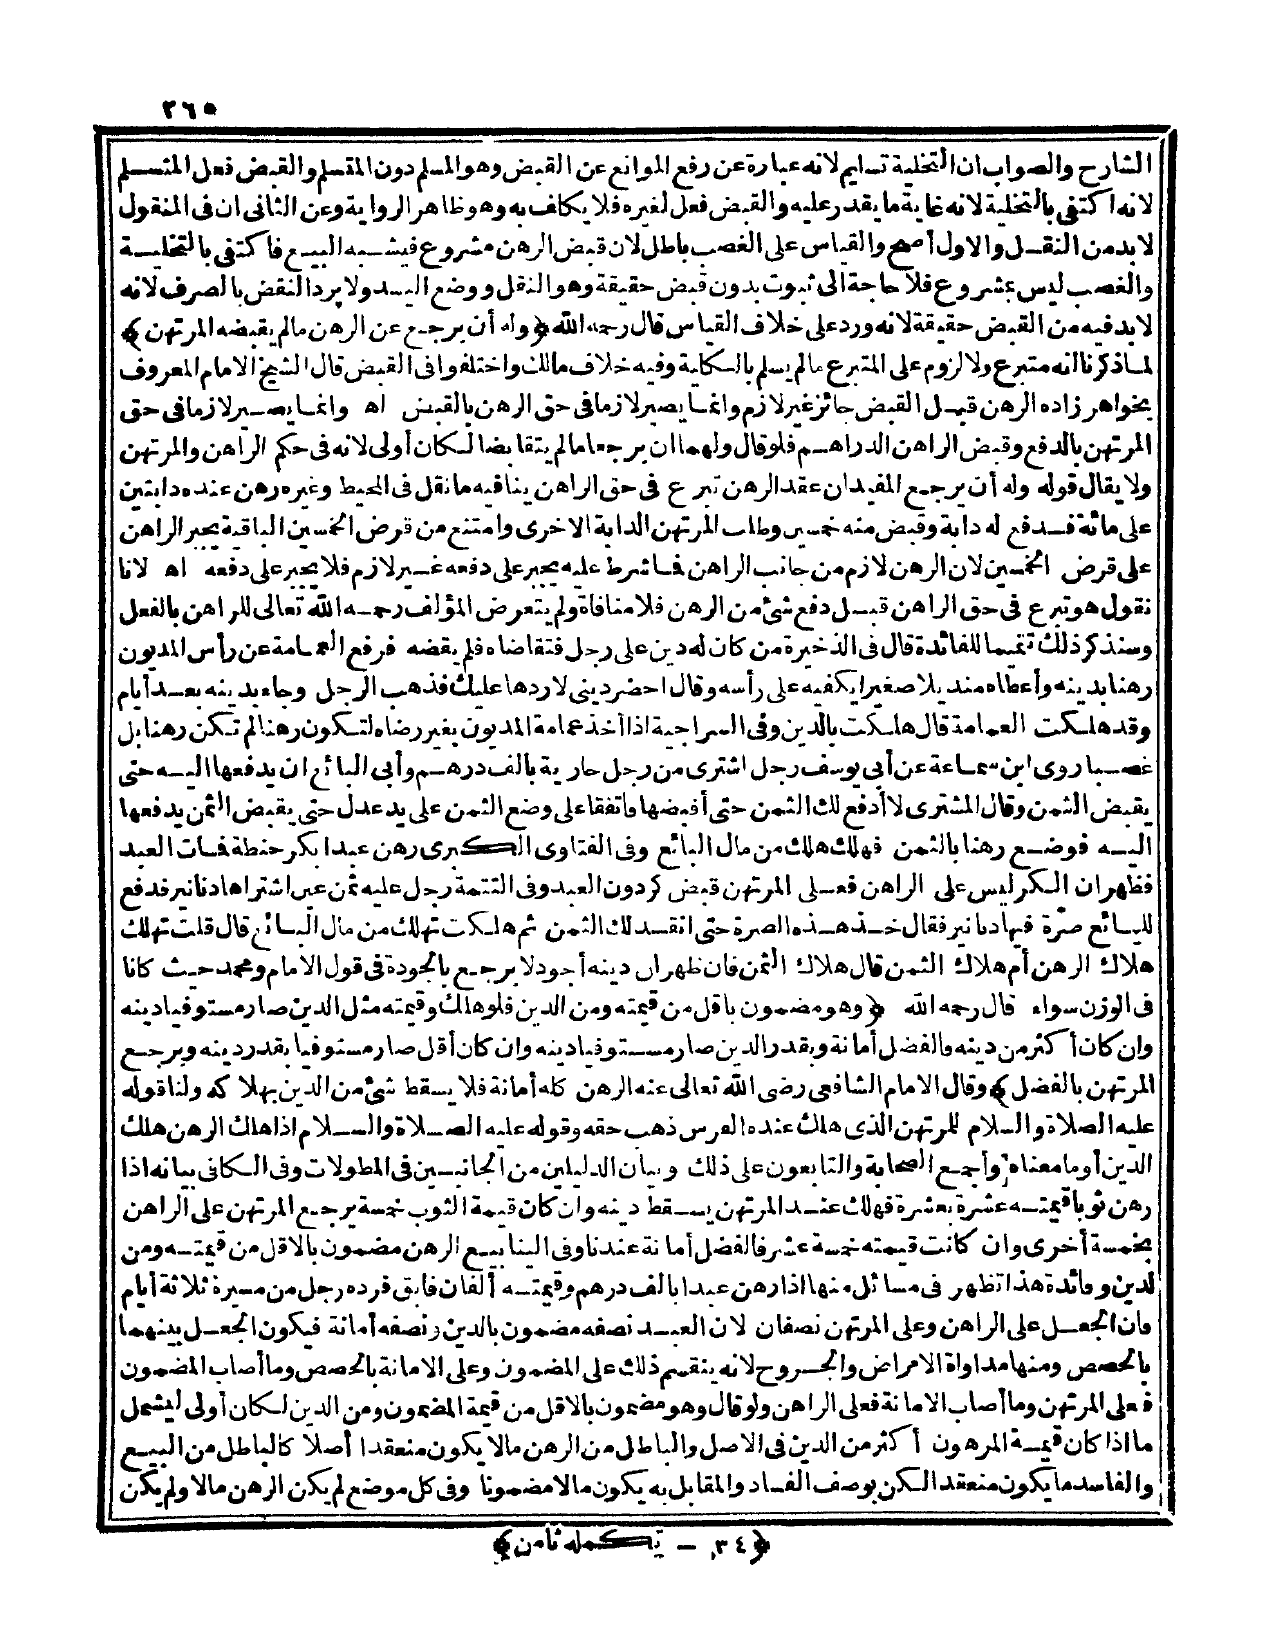 ٢٦٥
الشارح والصواب ان التخلية تسليم لانه عبارة عن رفع الموانع عن القبض وهو المسلم دون المتسلم والقبض فعل المتسلم
لانه اكتفى بالتخلية لانه غاية ما يقدر عليه والقبض فعل لغيره فلا يكلف به وهو ظاهر الرواية وعن الثانى ان فى المنقول
لا بد من النقل والاول أصح والقياس على الغصب باطل لان قبض الرهن مشروع فيشبه البيع فاكتفى بالتخلية
والغصب ليس بمشروع فلا حاجة الى ثبوت بدون قبض حقيقة وهو النقل ووضع اليد ولا يرد النقض بالصرف لانه
لا بد فيه من القبض حقيقة لانه ورد على خلاف القياس قال رحمه الله ﴿وله أن يرجع عن الرهن مالم يقبضه المرتهن﴾
لما ذكرنا انه متبرع ولا لزوم على المتبرع مالم يسلم بالكلية وفيه خلاف مالك واختلفوا فى القبض قال الشيخ الامام المعروف
بخواهر زاده الرهن قبل القبض جائز غير لازم وانما يصير لازما فى حق الرهن بالقبض اه وانما يصير لازما فى حق
المرتهن بالدفع وقبض الراهن الدراهم فلو قال ولهما ان يرجعا ما لم يتقابضا لكان أولى لانه فى حكم الراهن والمرتهن
ولا يقال قوله وله أن يرجع المفيد ان عقد الرهن تبرع فى حق الراهن ينافيه ما نقل فى المحيط وغيره رهن عنده دابتين
على مائة فدفع له دابة وقبض منه خمسين وطلب المرتهن الدابة الاخرى وامتنع من قرض الخمسين الباقية يجبر الراهن
على قرض الخمسين لان الرهن لازم من جانب الراهن فما شرط عليه يجبر على دفعه غير لازم فلا يجبر على دفعه اه لانا
نقول هو تبرع فى حق الراهن قبل دفع شئ من الرهن فلا منافاة ولم يتعرض المؤلف رحمه الله تعالى للراهن بالفعل
وسنذكر ذلك تتميما للفائدة قال فى الذخيرة من كان له دين على رجل فتقاضاه فلم يقضه فرفع العمامة عن رأس المديون
رهنا بدينه وأعطاه منديلا صغيرا يكفيه على رأسه وقال احضر دينى لاردها عليك فذهب الرجل وجاء بدينه بعد أيام
وقد هلكت العمامة قال هلكت بالدين وفى السراجية اذا أخذ عمامة المديون بغير رضاه لتكون رهنا لم تكن رهنا بل
غصبا روى ابن سماعة عن أبى يوسف رجل اشترى من رجل جارية بالف درهم وأبى البائع ان يدفعها اليه حتى
يقبض الثمن وقال المشترى لا أدفع لك الثمن حتى أقبضها فاتفقا على وضع الثمن على يد عدل حتى يقبض الثمن يدفعها
اليه فوضع رهنا بالثمن فهلك هلك من مال البائع وفى الفتاوى الكبرى رهن عبدا بكر حنطة فمات العبد
فظهر ان الكر ليس على الراهن فعلى المرتهن قبض كر دون العبد وفى التتمة رجل عليه ثمن عين اشتراها دنانير فدفع
للبائع صرّة فيها دنانير فقال خذ هذه الصرة حتى انقد لك الثمن ثم هلكت تهلك من مال البائع قال قلت تهلك
هلاك الرهن أم هلاك الثمن قال هلاك الثمن فان ظهر ان دينه أجود لا يرجع بالجودة فى قول الامام ومحمد حيث كانا
فى الوزن سواء قال رحمه الله ﴿وهو مضمون باقل من قيمته ومن الدين فلو هلك وقيمته مثل الدين صار مستوفيا دينه
وان كان أكثر من دينه فالفضل أمانة وبقدر الدين صار مستوفيا دينه وان كان أقل صار مستوفيا بقدر دينه ويرجع
المرتهن بالفضل﴾ وقال الامام الشافعى رضى الله تعالى عنه الرهن كله أمانة فلا يسقط شئ من الدين بهلاكه ولنا قوله
عليه الصلاة والسلام للمرتهن الذى هلك عنده الفرس ذهب حقه وقوله عليه الصلاة والسلام اذا هلك الرهن هلك
الدين أو ما معناه وأجمع الصحابة والتابعون على ذلك وبيان الدليلين من الجانبين فى المطولات وفى الكافى بيانه اذا
رهن ثوبا قيمته عشرة بعشرة فهلك عند المرتهن يسقط دينه وان كان قيمة الثوب خمسة يرجع المرتهن على الراهن
بخمسة أخرى وان كانت قيمته خمسة عشر فالفضل أمانة عندنا وفى الينابيع الرهن مضمون بالاقل من قيمته ومن
لدين وفائدة هذا تظهر فى مسائل منها اذا رهن عبدا بالف درهم وقيمته ألفان فابق فرده رجل من مسيرة ثلاثة أيام
فان الجعل على الراهن وعلى المرتهن نصفان لان العبد نصفه مضمون بالدين ونصفه أمانة فيكون الجعل بينهما
بالحصص ومنها مداواة الامراض والجروح لانه ينقسم ذلك على المضمون وعلى الامانة بالحصص وما أصاب المضمون
فعلى المرتهن وما أصاب الامانة فعلى الراهن ولو قال وهو مضمون بالاقل من قيمة المضمون ومن الدين لكان أولى ليشمل
ما اذا كان قيمة المرهون أكثر من الدين فى الاصل والباطل من الرهن مالا يكون منعقدا أصلا كالباطل من البيع
والفاسد ما يكون منعقدا لكن بوصف الفساد والمقابل به يكون مالا مضمونا وفى كل موضع لم يكن الرهن مالا ولم يكن
﴿٣٤ – تكمله ثامن﴾